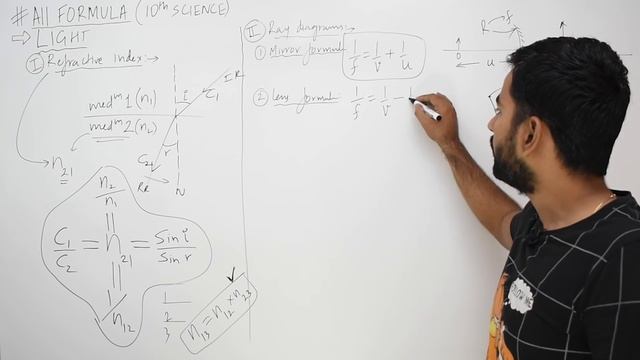 # All FORMULA (10th SCIENCE)
⇒ LIGHT
I Refractive index:→
medm 1 (n1)
medm 2 (n2)
i
I R
C1
C2
r
RR
N
n21
n2/n1
C1/C2 = n21 = Sin i/Sin r
1/n12
1
2
3
n13 = n12 × n23 ✓
II Ray diagrams:→
① Mirror formula 1/f = 1/v + 1/u
② Lens formula: 1/f = 1/v - 1
R f
O
← u
FOLLOW ME